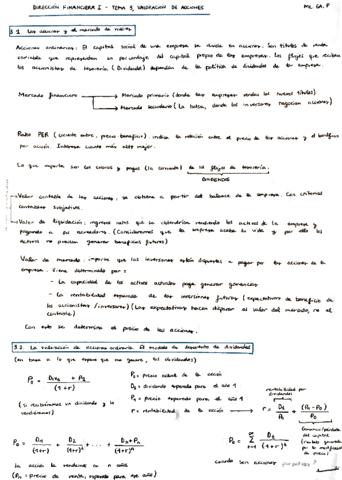 DIRECCIÓN FINANCIERA I - TEMA 3, VALORACIÓN DE ACCIONES
3.1. Las acciones y el mercado de valores
Acciones ordinarias: El capital social de una empresa se divide en acciones. Son títulos de renta
variable que representan un porcentaje del capital propio de las empresas. Los flujos que reciben
los accionistas de tesorería (Dividendos) dependen de la política de dividendos de la empresa.
Mercado financiero → Mercado primario (donde las empresas venden los nuevos títulos)
→ Mercado secundario (La bolsa, donde los inversores negocian acciones)
Ratio PER (cociente entre, precio beneficio). indica la relación entre el precio de las acciones y el beneficio
por acción. Interesa cuanto más alto mejor.
Lo que importa son los cobros y pagos (la corriente) de los flujos de tesorería.
DIVIDENDOS
Valor contable de las acciones: se obtiene a partir del balance de la empresa. Con criterios
contables subjetivos.
Valor de liquidación: ingresos netos que se obtendrían vendiendo los activos de la empresa y
pagando a sus acreedores. (Consideramos que la empresa acaba la vida y por ello los
activos no puedan generar beneficios futuros)
Valor de mercado: importe que los inversores están dispuestos a pagar por las acciones de la
empresa. Viene determinado por:
- La capacidad de los activos actuales para generar ganancias
- La rentabilidad esperada de las inversiones futuras (expectativas de beneficio de
los accionistas/inversores) (Las expectativas hacen disparar el valor del mercado, no el
contable)
Con esto se determina el precio de las acciones.
3.2. La valoración de acciones ordinarias. El modelo de descuento de dividendos
(en base a lo que espero que me generen, los dividendos)
P₀ = precio actual de la acción
D₁ = dividendo esperado para el año 1
P₁ = precio esperado para el año 1
r = rentabilidad de la acción
(si recibiéramos un dividendo y la
vendiéramos)
rentabilidad por
dividendos
r = D₁/P₀ + (P₁ - P₀)/P₀
P₀ = D₁/(1+r) + D₂/(1+r)² + ... + Dₙ+Pₙ/(1+r)ⁿ
la acción la vendemos en n años
(Pₙ = precio de venta, esperado para ese año)
cuando son acciones perpetuas